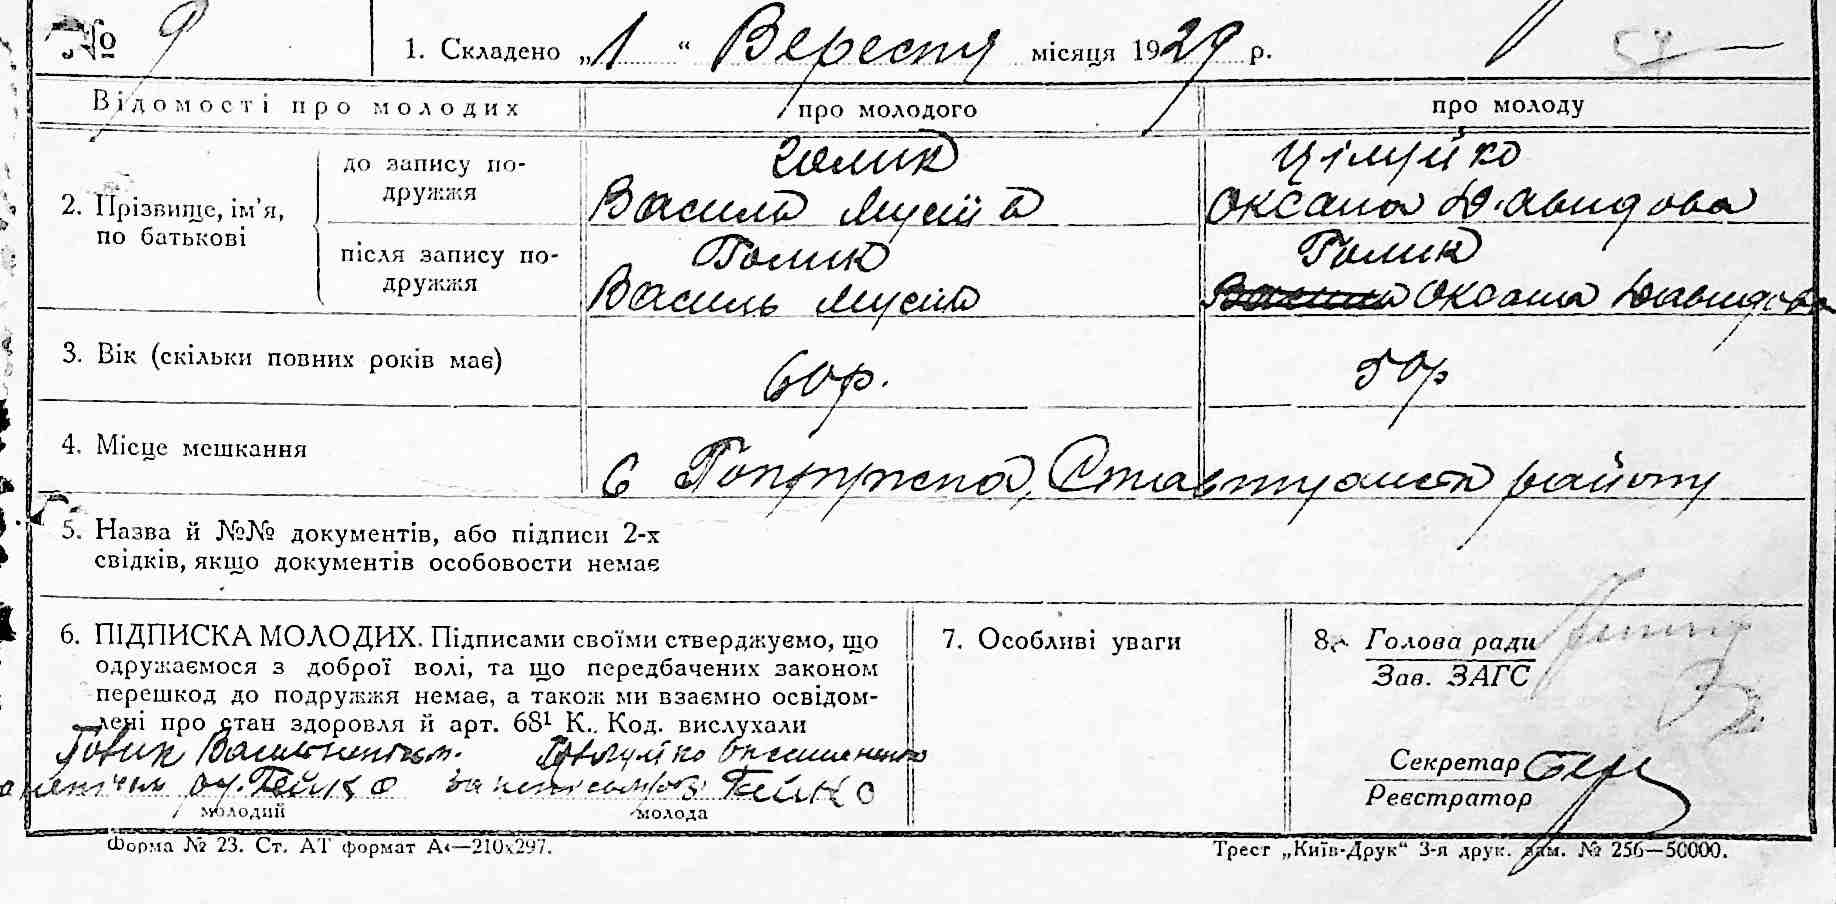 № 9
1. Складено „1“ Вересня місяця 1929 р.
54
Відомості про молодих
про молодого
про молоду
2. Прізвище, ім’я, по батькові
до запису по-
дружжя
Голик
Василь Мусіїв
Цілуйко
Оксана Давидова
після запису по-
дружжя
Голик
Василь Мусіїв
Голик
Оксана Давидова
3. Вік (скільки повних років має)
60р.
50р
4. Місце мешкання
С Попружна, Ставищанськ району
5. Назва й №№ документів, або підписи 2-х
свідків, якщо документів особовости немає
6. ПІДПИСКА МОЛОДИХ. Підписами своїми стверджуємо, що
одружаємося з доброї волі, та що передбачених законом
перешкод до подружжя немає, а також ми взаємно освідом-
лені про стан здоровля й арт. 68¹ К. Код. вислухали
Голик Василь неписьм.
Цілуйко Оксана
Гейко
Гейко
молодий
молода
7. Особливі уваги
8. Голова ради
Зав. ЗАГС
Секретар
Реєстратор
Форма № 23. Ст. АТ формат А4—210х297.
Трест „Київ-Друк“ 3-я друк. зам. № 256—50000.